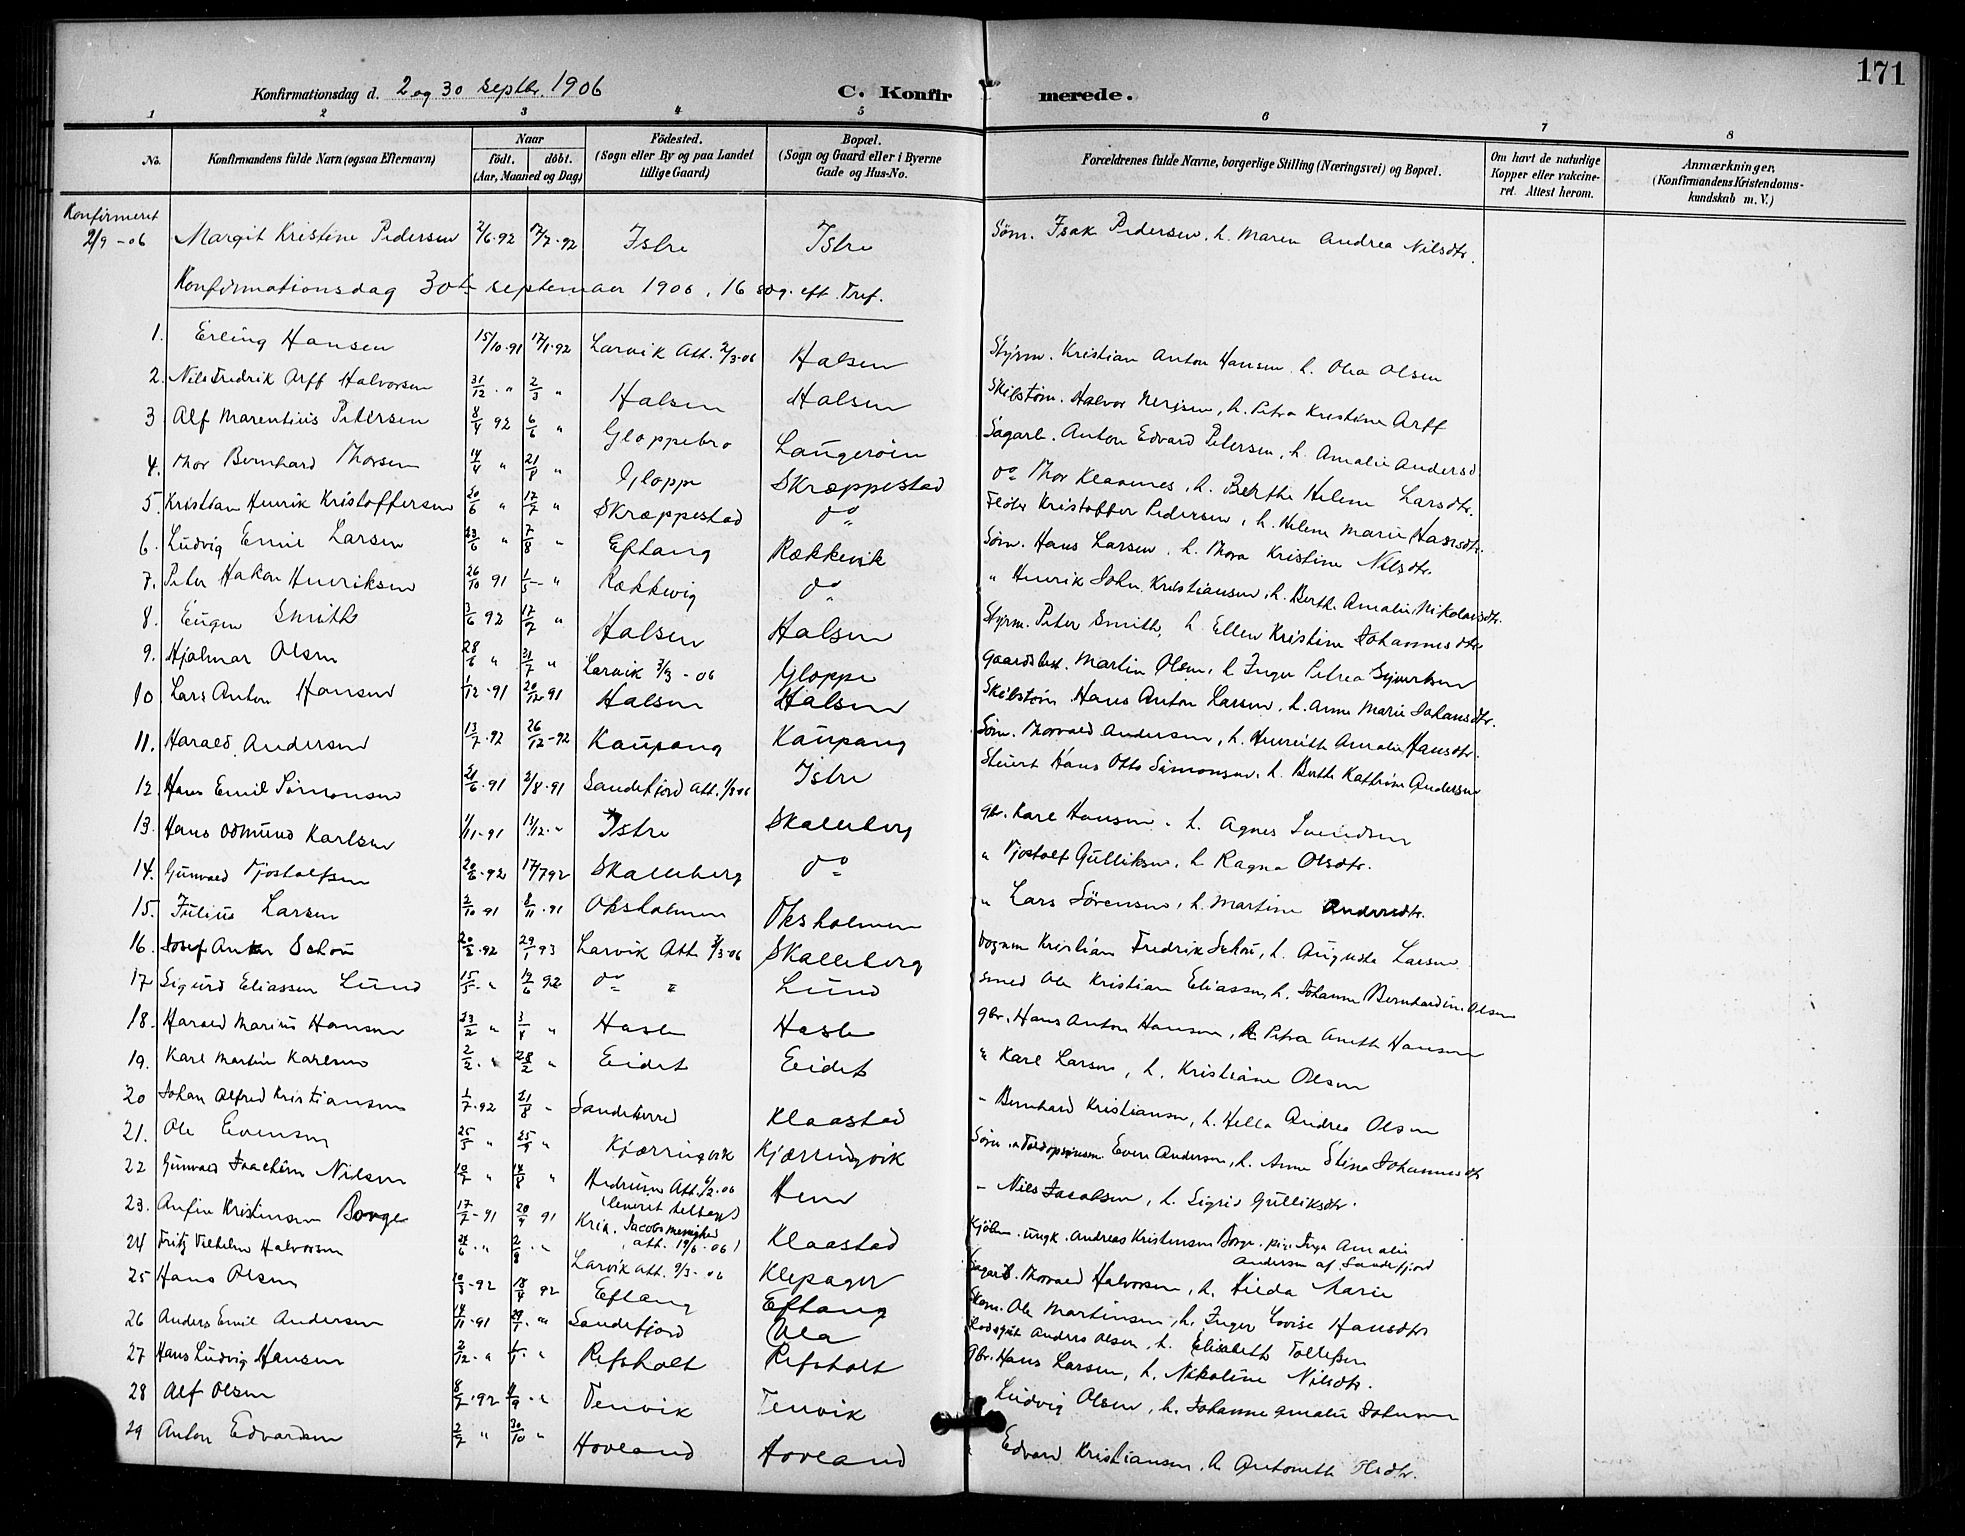 171
Konfirmationsdag d. 2 og 30 septbr. 1906 C. Konfir merede.
1 2 3 4 5 6 7 8
No. Konfirmandens fulde Navn (ogsaa Efternavn) Naar födt. döbt. (Aar, Maaned og Dag) Födested. (Sogn eller By og paa Landet tillige Gaard) Bopæl. (Sogn og Gaard eller i Byerne Gade og Hus-No. Forældrenes fulde Navne, borgerlige Stilling (Næringsvei) og Bopæl. Om havt de naturlige Kopper eller vakcineret. Attest herom. Anmærkninger, (Konfirmandens Kristendomskundskab m. V.)
Konfirmeret
2/9 - 06 Margit Kristine Pedersen 2/6-92 17/7-92 Istre Istre Søm. Isak Pedersen, h. Maren Andrea Nilsdtr.
Konfirmationsdag 30te september 1906, 16 søg. eft. Tref.
1. Erling Hansen 15/10-91 17/1-92 Larvik Att. 2/3-06 Halsen Styrm. Kristian Anton Hansen h. Olea Olsen
2. Nils Fredrik Arff Halvorsen 31/12 - " 2/3 " Halsen Halsen Skibstøm. Halvor Nerjsen, h. Petra Kristine Arff
3 Alf Marentius Petersen 8/4 92 6/6 " Gloppebro Laugeroin Sagarb. Anton Edvard Petersen, h. Amalie Andersd
4. Thor Bernhard Thorsen 14/4 " 21/8 " Gloppe Skræppestad do Thor Klavenes, h. Berthe Helene Larsdtr.
5. Kristian Henrik Kristoffersen 20/6 " 17/7 " Skræppestad do Kristoffer Pedersen, h. Helene Marie Hansdtr.
6. Ludvig Emil Larsen 23/6 " 7/8 " Eftang Rækkevik Søm. Hans Larsen, h. Thora Kristine Nilsdtr.
7. Peter Hakon Henriksen 26/10 91 1/5 - " Rækkevig do " Henrik John Kristiansen, h. Berthe Amalie Nikolaisdtr.
8. Eugen Smith 3/6 92 17/7 " Halsen Halsen Styrm. Peter Smith, h. Ellen Kristine Johannesdtr
9. Hjalmar Olsen 28/6 " 31/7 " Larvik 3/3 - 06 Gloppe Gaardsbest. Martin Olsen, h Inger Petrea Syvertsen
10 Lars Anton Hansen 1/12-91 20/12 91 Halsen Halsen Skibstøm Hans Anton Larsen, h. Anne Marie Johansdtr.
11. Harald Andersen 13/7-92 26/12-92 Kaupang Kaupang Søm. Thorvald Andersen, h. Henriette Amalie Hansdtr.
12. Hans Emil Simonsen 21/6-91 2/8-91 Sandefjord Att. 1/3 06 Istre Stuert Hans Otto Simonsen, h. Berthe Kathrine Andersen
13. Hans Odmund Karlsen 1/11-91 13/12-" Istre Skalleberg gbr. Karl Hansen - h. Agnes Svendsen
14. Gunvald Tjostolfsen 20/6-92 17/7 92 Skalleberg do " Tjostolf Gulliksen, h. Ragna Olsdtr.
15. Julius Larsen 2/10 91 8/11-91 Oksholmen Oksholmen " Lars Sörensen, h. Martine Andersdtr.
16. Josef Anker Schou 20/2-92 29/1 93 Larvik Att. 3/3-06 Skalleberg Vognm Kristian Fredrik Schou, h. Augusta Larsen
17. Sigurd Eliassen Lund 15/5-" 12/6 92 do " Lund Smed Ole Kristian Eliassen, h. Johanne Bernhardine Olsen
18. Harald Marius Hansen 23/2 " 3/4 " Hasle Hasle gbr. Hans Anton Hansen, h. Petra Anette Hansen
19. Karl Martin Karlsen 2/2-" 28/2 " Eidet Eidet " Karl Larsen, h. Kristiane Olsen
20 Johan Alfred Kristiansen 1/7-92 21/8 - Sandeherred Klaastad - Bernhard Kristiansen, h. Hella Andrea Olsen
21. Ole Evensen 25/5 " 25/9 " Kjærringvik Kjærringvik Søm. Even Andersen, h. Anne Stina Johannesdtr
22 Gunvald Joachim Nilsen 10/7 " 14/8 " Hedrum Att. 6/2-06 Hem - Nils Jacobsen, h. Sigrid Gulliksdtr.
(leveret tilbage)
23. Anfin Kristensen Borge 17/7-91 20/9 91 Kria. Jacobs menighed att. 19/6-06) Klaastad Kjøbm. ungk. Andreas Kristensen Borge - pige Inga Amalie Andersen af Sandefjord
24 Fritz Vilhelm Halvorsen 26/6 - " 2/8 - " Larvik Att. 9/3-06 Klepager Sagarb. Thorvald Halvorsen, h. Hilda Marie
25 Hans Olsen 10/3-92 18/4 92 Eftang Eftang Skom. Ole Martinsen, h. Inger Lovise Hansdtr
26 Anders Emil Andersen 14/11-91 29/1 - " Sandefjord Ula Anders Olsen, h. Elisabeth Tollefsen
27 Hans Ludvig Hansen 2/12-" 1/1-" Refsholt Refsholt gbr. Hans Larsen, h. Nikoline Nilsdtr.
28 Alf Olsen 8/7-92 4/9-" Tenvik Tenvik Ludvig Olsen, h. Johanne Amalie Johnsen
29 Anton Edvardsen 2/9 " 30/10 " Hovland Hovland Edvard Kristiansen, h Antonette Olsdtr.